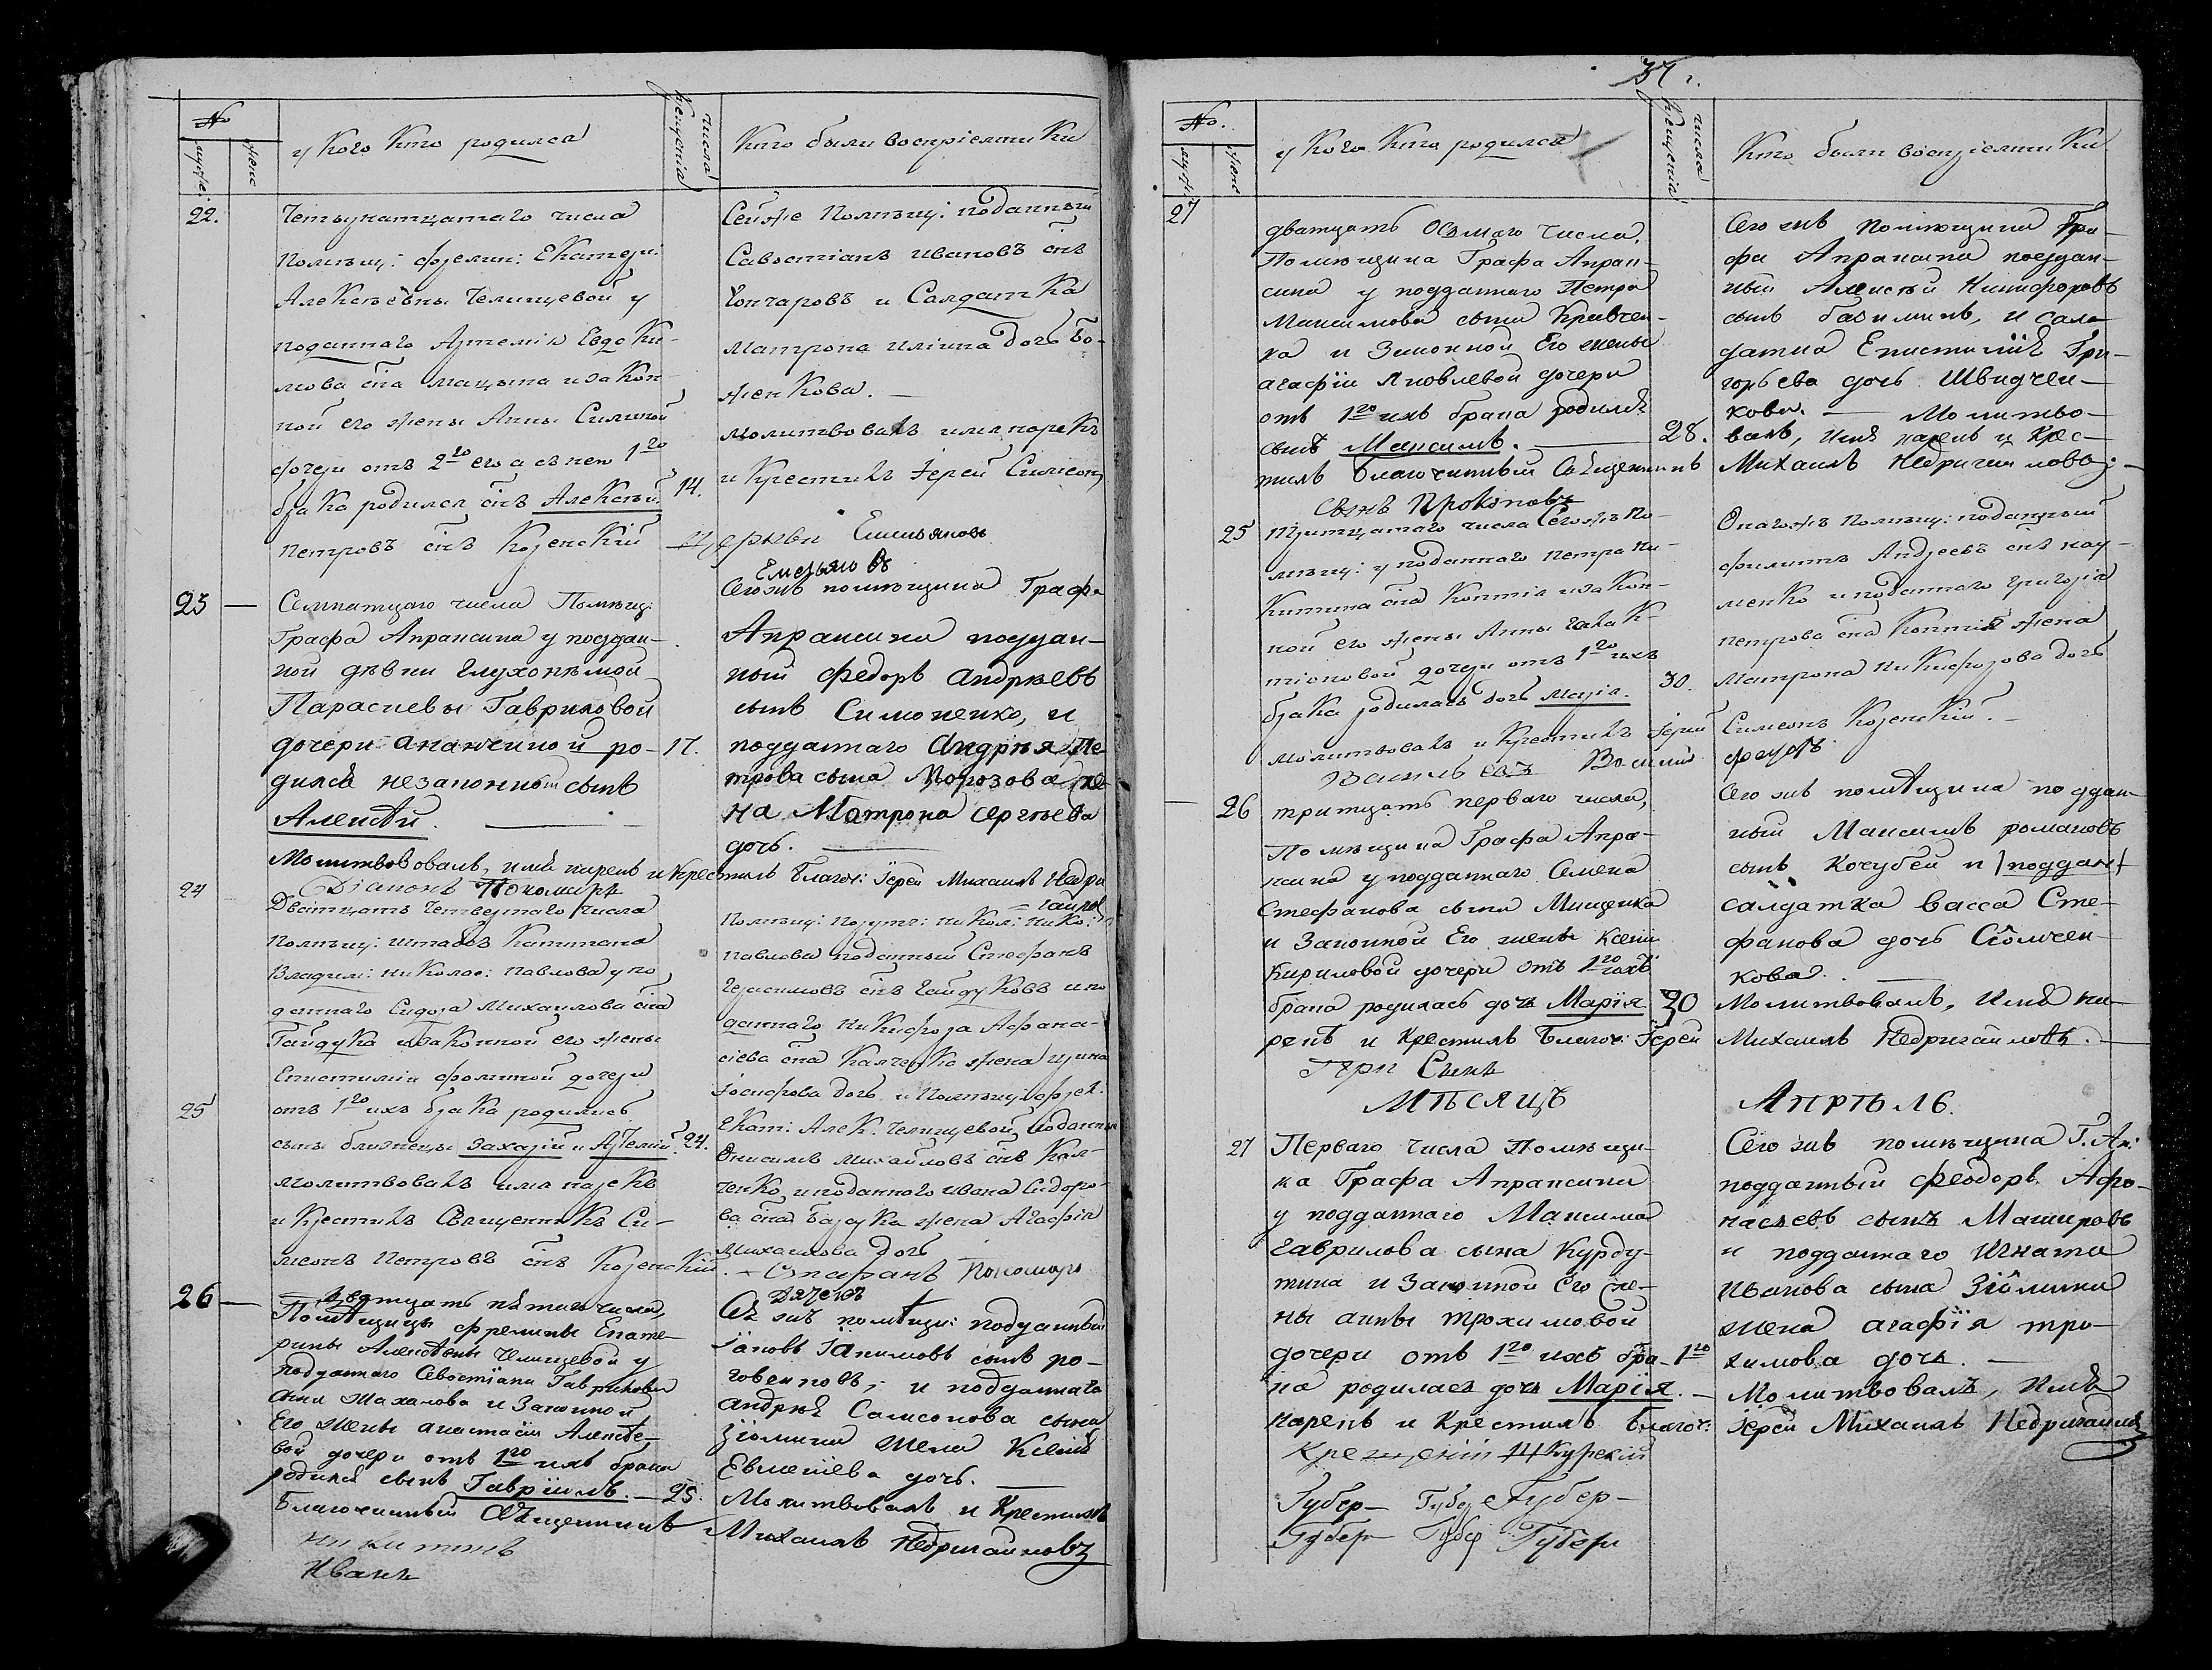 №
муж:
женс
у кого кто родился
числа крещенія
Кто были воспріемники
22.
Четырнатцатаго числа
Помѣщ: фрелин: Екатери:
Алексѣевны Челищевой у
поданнаго Артемія Евдоки-
мова сна и закон-
ной его жены Анны Силиной
дочери отъ 2го его а съ нею 1го
брака родился снъ Алексѣй
14.
Петровъ снъ Козенскій
Сейже Помѣщ: поданный
Савостіанъ ивановъ снъ
Гончаровъ и Салдатка
Матрона иліина дочь Бо-
женкова.
молитвовалъ имя нарекъ
и Крестилъ Іерей Симеонъ
Емельяновъ
23
Семнатцаго числа Помѣщ:
Графа Апраксина у поддан-
ной дѣвки глухонѣмой
Парасцевы Гавриловой
дочери ананченной ро-
17.
дился незаконный сынъ
Алексѣй.
Молитвовалъ, имя нарекъ и Крестилъ Благоч: Іерей Михаилъ Недри
гаилов
Діаконъ Пономарь
Сегожъ помѣщика Графа
Апраксина поддан-
ный Федоръ Андрѣевъ
сынъ Симоненко, и
подданнаго Андрѣя Пе-
трова сына Морозова же-
на Матрона Сергѣева
дочь.
24
Дватцать Четвертаго числа
Помѣщ: штабсъ Капитана
Владим: николае: Павлова у по
даннаго Сидора Михаилова сна
Гайдука и законной его жены
Епистиміи фоминой дочери
25
отъ 1го ихъ брака родились
сыны близнецы Захарій и Артемій.
24.
молитвовалъ имя нарекъ
и Крестилъ Священникъ Си-
меонъ Петровъ снъ Козенскій
Помѣщ: поруч: никол: нико:
Павлова поданный Стефанъ
Герасимовъ снъ Гайдуковъ и по
даннаго Никифора Афана-
сіева сна Калченка жена ирина
Іосифова дочь и Помѣщ: фрел:
Екат: Алек: Челищевой поданный
Онисимъ Михайловъ снъ Кал-
ченко, и поданнаго ивана Сидоро-
ва сна жена Агафія
Михаилова дочь
Стефанъ Пономарь
26
Двотцать пѣтаго числа,
Помѣщицы Фрелины Екате-
рины Алексѣвны Челищевой у
подданнаго Севостіана Гаврилова
сына и законной
Его жены анастасіи Алексѣе-
вой дочери отъ 1го ихъ брака
родился сынъ Гавріилъ.
25.
Благочинный Священникъ
Никитинъ
Иванъ
Дячекъ
Сѣ жъ помѣщи: подданный
Іаковъ Іакимовъ сынъ ро-
говенковъ, и подданнаго
Андрѣя Самсонова сына
Зюмина жена Ксенія
Евменіева дочь.
Молитвовалъ и Крестилъ
Михаилъ Недригаиловъ
37.
№.
муж:
женс
у Кого Кто родился
числа крещенія
Кто были воспріемники
27
дватцать Осмаго числа,
Помѣщика Графа Апрак-
сина у подданнаго Петра
Максимова сына Кравчен-
ка и Законной Его жены
агафіи Яковлевой дочери
отъ 1го ихъ брака родился
сынъ Максимъ.
28.
тилъ Благочинный Священникъ
Сынъ Прокіповъ
Сего жъ помѣщика Гра-
фа Апраксина поддан-
ный Алексѣй Никифоровъ
сынъ и сал-
датка Епистимія Гри-
горьева дочь Швидчен-
кова. Молитво-
валъ, имя нарекъ и крес-
Михаилъ Недригаиловъ
25
Тритцатаго числа Сегожъ По-
мѣщ: у поданнаго петра ни-
китина сна Коптія и закон-
ной его жены Анны Галак-
тіоновой дочери отъ 1го ихъ
брака родилась дочь Марія.
30.
молитвовалъ и Крестилъ Іерей
Васильевъ Василій
Онагожъ Помѣщ: поданный
филиппъ Андреевъ снъ нау-
менко и поданнаго григорія
петрова сна Коптія жена
матрона Никифорова дочь
Симеонъ Козенскій.
федоръ
26
тритцать перваго числа,
Помѣщика Графа Апра-
ксина у подданнаго Семена
Стефанова сына Мищенка
и Законной Его жены Ксеніи
Кириловой дочери отъ 1го ихъ
брака родилась дочь Марія
30
ренъ и Крестилъ Благоч: Іерей
Сынъ
Сего жъ помѣщика поддан-
ный Максимъ романовъ
сынъ Кочубей и (поддан)
салдатка васса Сте-
фанова дочь
кова.
Молитвовалъ, имя на-
Михаилъ Недригаиловъ.
Мѣсяцъ
Апрѣль.
27
Перваго числа Помѣщи-
ка Графа Апраксина
у подданнаго Максима
гаврилова сына Курду-
тина и Законной Его же-
ны анны трохимовой
дочери отъ 1го ихъ бра-
1го
ка родилась дочь Марія.
нарекъ и Крестилъ Благоч:
Сего жъ помѣщика Г. Ап:
подданный Феодоръ Афо-
насьевъ сынъ
и подданнаго Игната
Иванова сына Зюмина
жена агафія тро-
химова дочь.
Молитвовалъ, имя
Іерей Михаилъ Недригаиловъ
Крещеніи
Губер- Губер Губер-
Губер- Губер Губерн